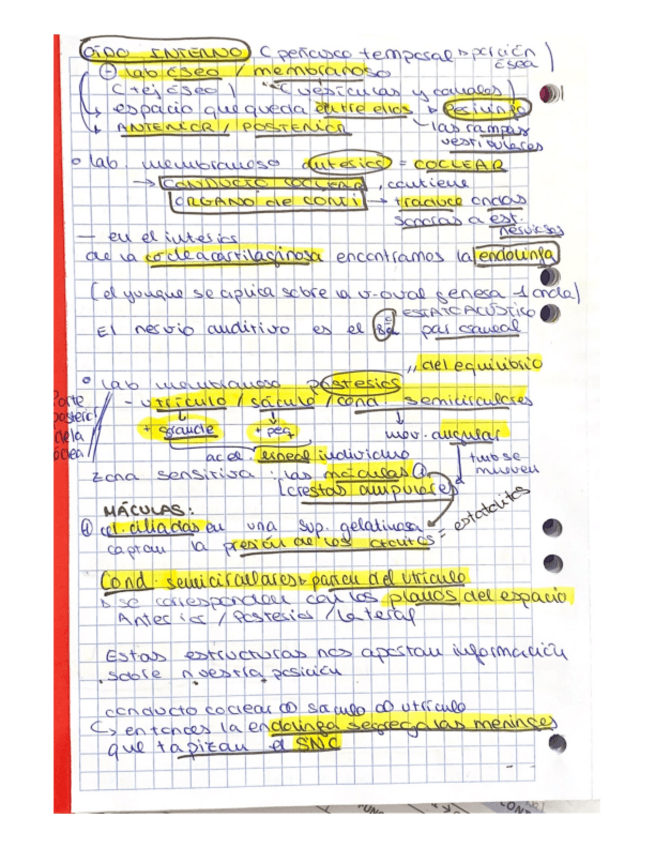 OÍDO INTERNO (peñasco temporal → porción ósea)
lab óseo / membranoso
(tej óseo) (vesículas y canales)
↳ espacio que queda entre ellos → Perilinfa
↳ ANTERIOR / POSTERIOR
las rampas vestibulares
° lab membranoso anterior = COCLEAR
→ CONDUCTO COCLEAR, contiene
ORGANO de CORTI → traduce ondas
sonoras a est. nerviosos
— en el interior
de la coclea cartilaginosa encontramos la endolinfa
(el yunque se aplica sobre la v. oval genera 1 onda)
ESTATOACÚSTICO
El nervio auditivo es el 8º par craneal
,, del equilibrio
° lab membranoso posterior
Parte posterior de la
- utrículo / sáculo / cond semicirculares
+ grande + peq mov. angular
acel lineal individuo
tmb se mueven
zona sensitiva : las máculas ①
crestas ampulares
MÁCULAS:
① cel. ciliadas en una sup. gelatinosa
captan la presión de los otolitos = estatolitos
Cond. semicirculares → parten del utrículo
↳ se corresponden con los planos del espacio
Anterior / Posterior / Lateral
Estas estructuras nos aportan información
sobre nuestra posición
conducto coclear ∞ saculo ∞ utrículo
↳ entonces la endolinfa segrega las meninges
que tapizan el SNC